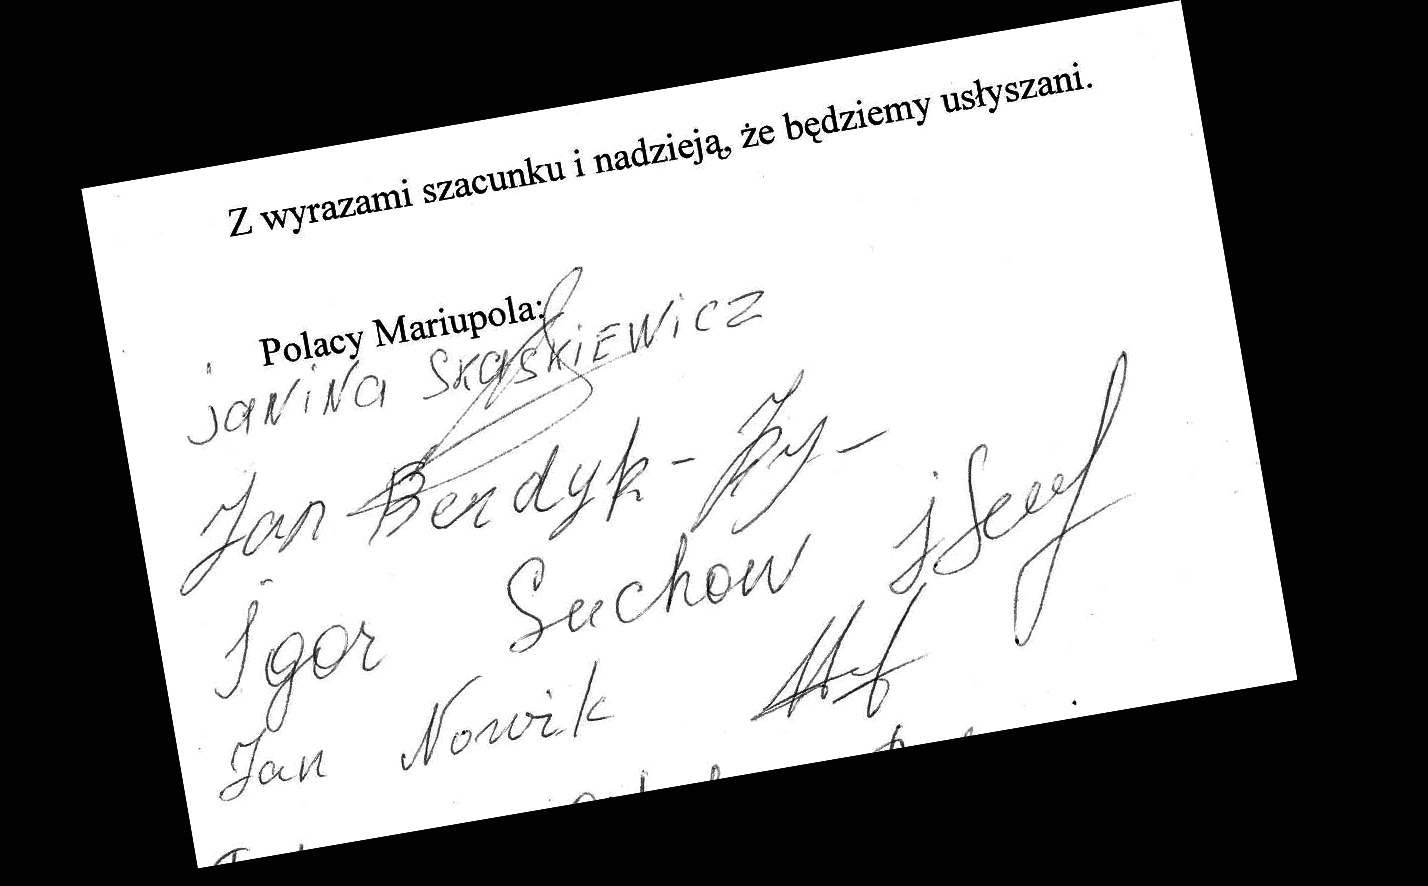 Z wyrazami szacunku i nadzieją, że będziemy usłyszani.
Polacy Mariupola:
JANINA SKASKIEWICZ
Jan Berdyk -
Igor Suchow
Jan Nowik